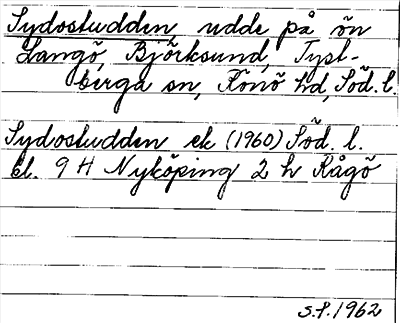 Sydostudden, udde på ön
Långö, Björksund, Tyst-
berga sn, Rönö hd, Söd. l.
Sydostudden ek (1960) Söd. l.
bl. 9 H Nyköping 2 h Rågö
S.P. 1962